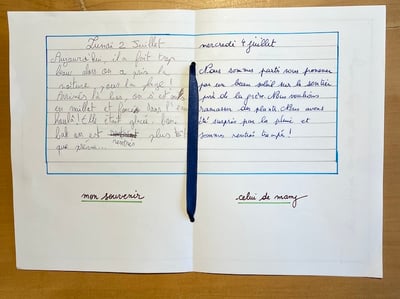 Lundi 2 Juillet
Aujourd'hui, il a fait trop
beau alors on a pris la
voiture pour la plage !
Arrivés là bas, on s'est mis
en maillot et dans l'eau
Elle était glacé, bon
bah on est rentrés plus tôt
que prévu...
mercredi 4 juillet
Nous sommes parti nous promener
par un beau soleil sur le sentier
près de la Nous voulions
ramasser des plants. Nous avons
été surpris par la pluie et
sommes rentrés trempé !
mon souvenir
celui de mamy